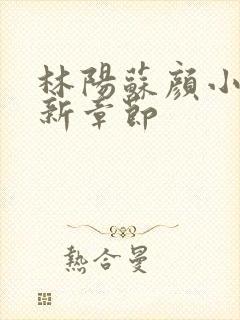 林陽蘇顏小
新章節
熱合曼